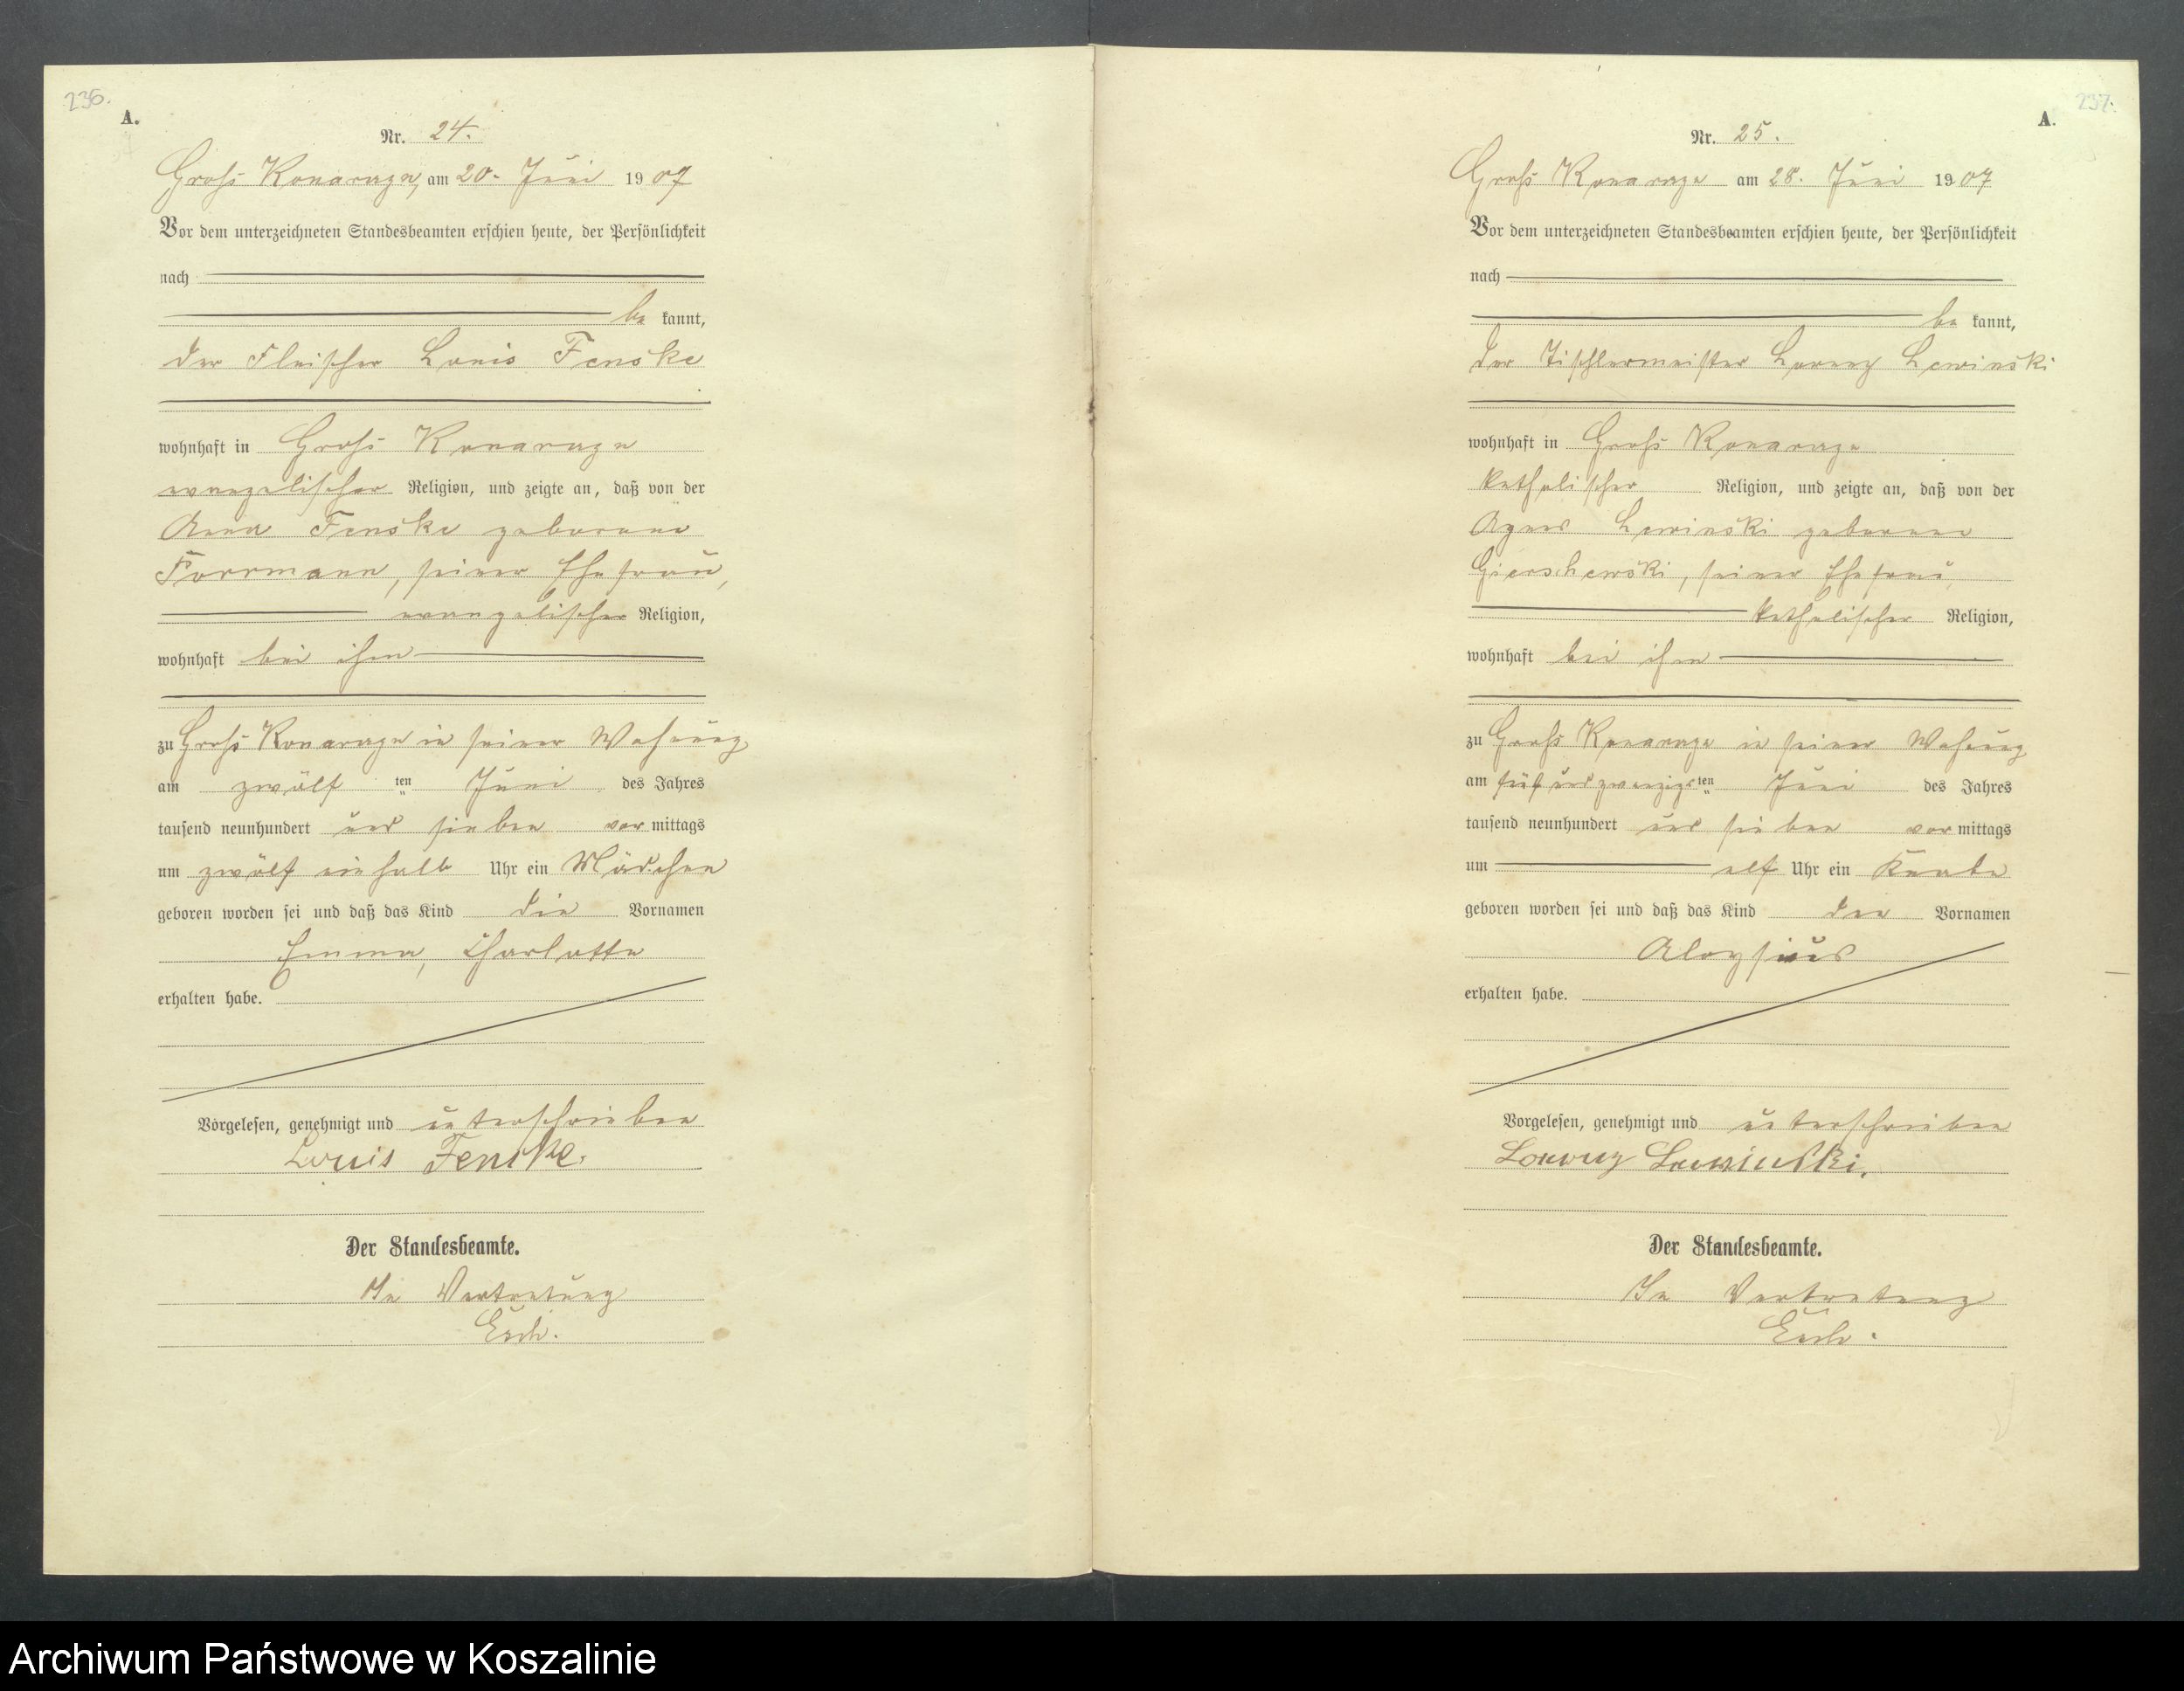 236.
A.
Nr. 24.
Groß Konarczyn, am 20. Juni 1907
Vor dem unterzeichneten Standesbeamten erschien heute, der Persönlichkeit
nach
be kannt,
der Fleischer Louis Fenske
wohnhaft in Groß
evangelischer Religion, und zeigte an, daß von der
Anna Fenske geborene
Forrmann, seiner Ehefrau,
evangelischer Religion,
wohnhaft bei ihm
zu Groß in seiner Wohnung
am zwölf ten Juni des Jahres
tausend neunhundert und sieben vor mittags
um zwölf einhalb Uhr ein Mädchen
geboren worden sei und daß das Kind die Vornamen
Emma, Charlotte
erhalten habe.
Vorgelesen, genehmigt und unterschrieben
Louis Fenske.
Der Standesbeamte.
In Vertretung
Esch.
237.
A.
Nr. 25.
Groß am 28. Juni 1907
Vor dem unterzeichneten Standesbeamten erschien heute, der Persönlichkeit
nach
be kannt,
der Tischlermeister Lorenz Lewinski
wohnhaft in Groß
katholischer Religion, und zeigte an, daß von der
Agnes Lewinski geborene
Gierschewski, seiner Ehefrau,
katholischer Religion,
wohnhaft bei ihm
zu Groß in seiner Wohnung
am fünf und zwanzigsten Juni des Jahres
tausend neunhundert und sieben vor mittags
um elf Uhr ein Knabe
geboren worden sei und daß das Kind den Vornamen
Aloysius
erhalten habe.
Vorgelesen, genehmigt und unterschrieben
Lorenz Lewinski.
Der Standesbeamte.
In Vertretung
Esch.
Archiwum Państwowe w Koszalinie